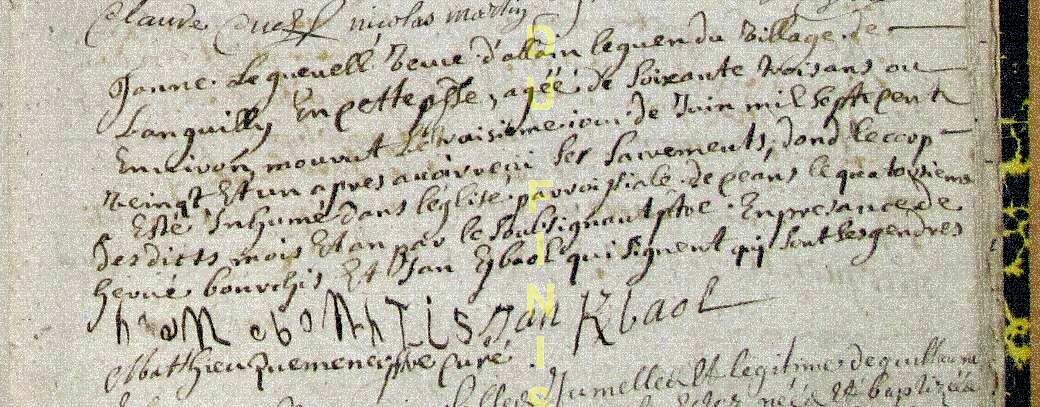 Claude nicolas martin
Janne Le quenell Veuve d'allain leguen du Village de
Lanquilly En cette psse, agéé de soixante trois ans ou
Environ, mourut Le troisieme iour de Juin mil sept cent
veingt Et un apres avoir reçu ses sacrements, dond le corp
Esté Inhumé dans l'église parroissiale de ceans le quatorsieme
desdicts mois Et an par le soubsignant ptre. En presance de
hervé bourchis Et Jan Kbaol qui signent qui sont ses gendres
Jan Kbaol
Matthieu quemeneur ptre curé
Jumelle et legitime de guillaume
néé Et baptizéé
FINIS